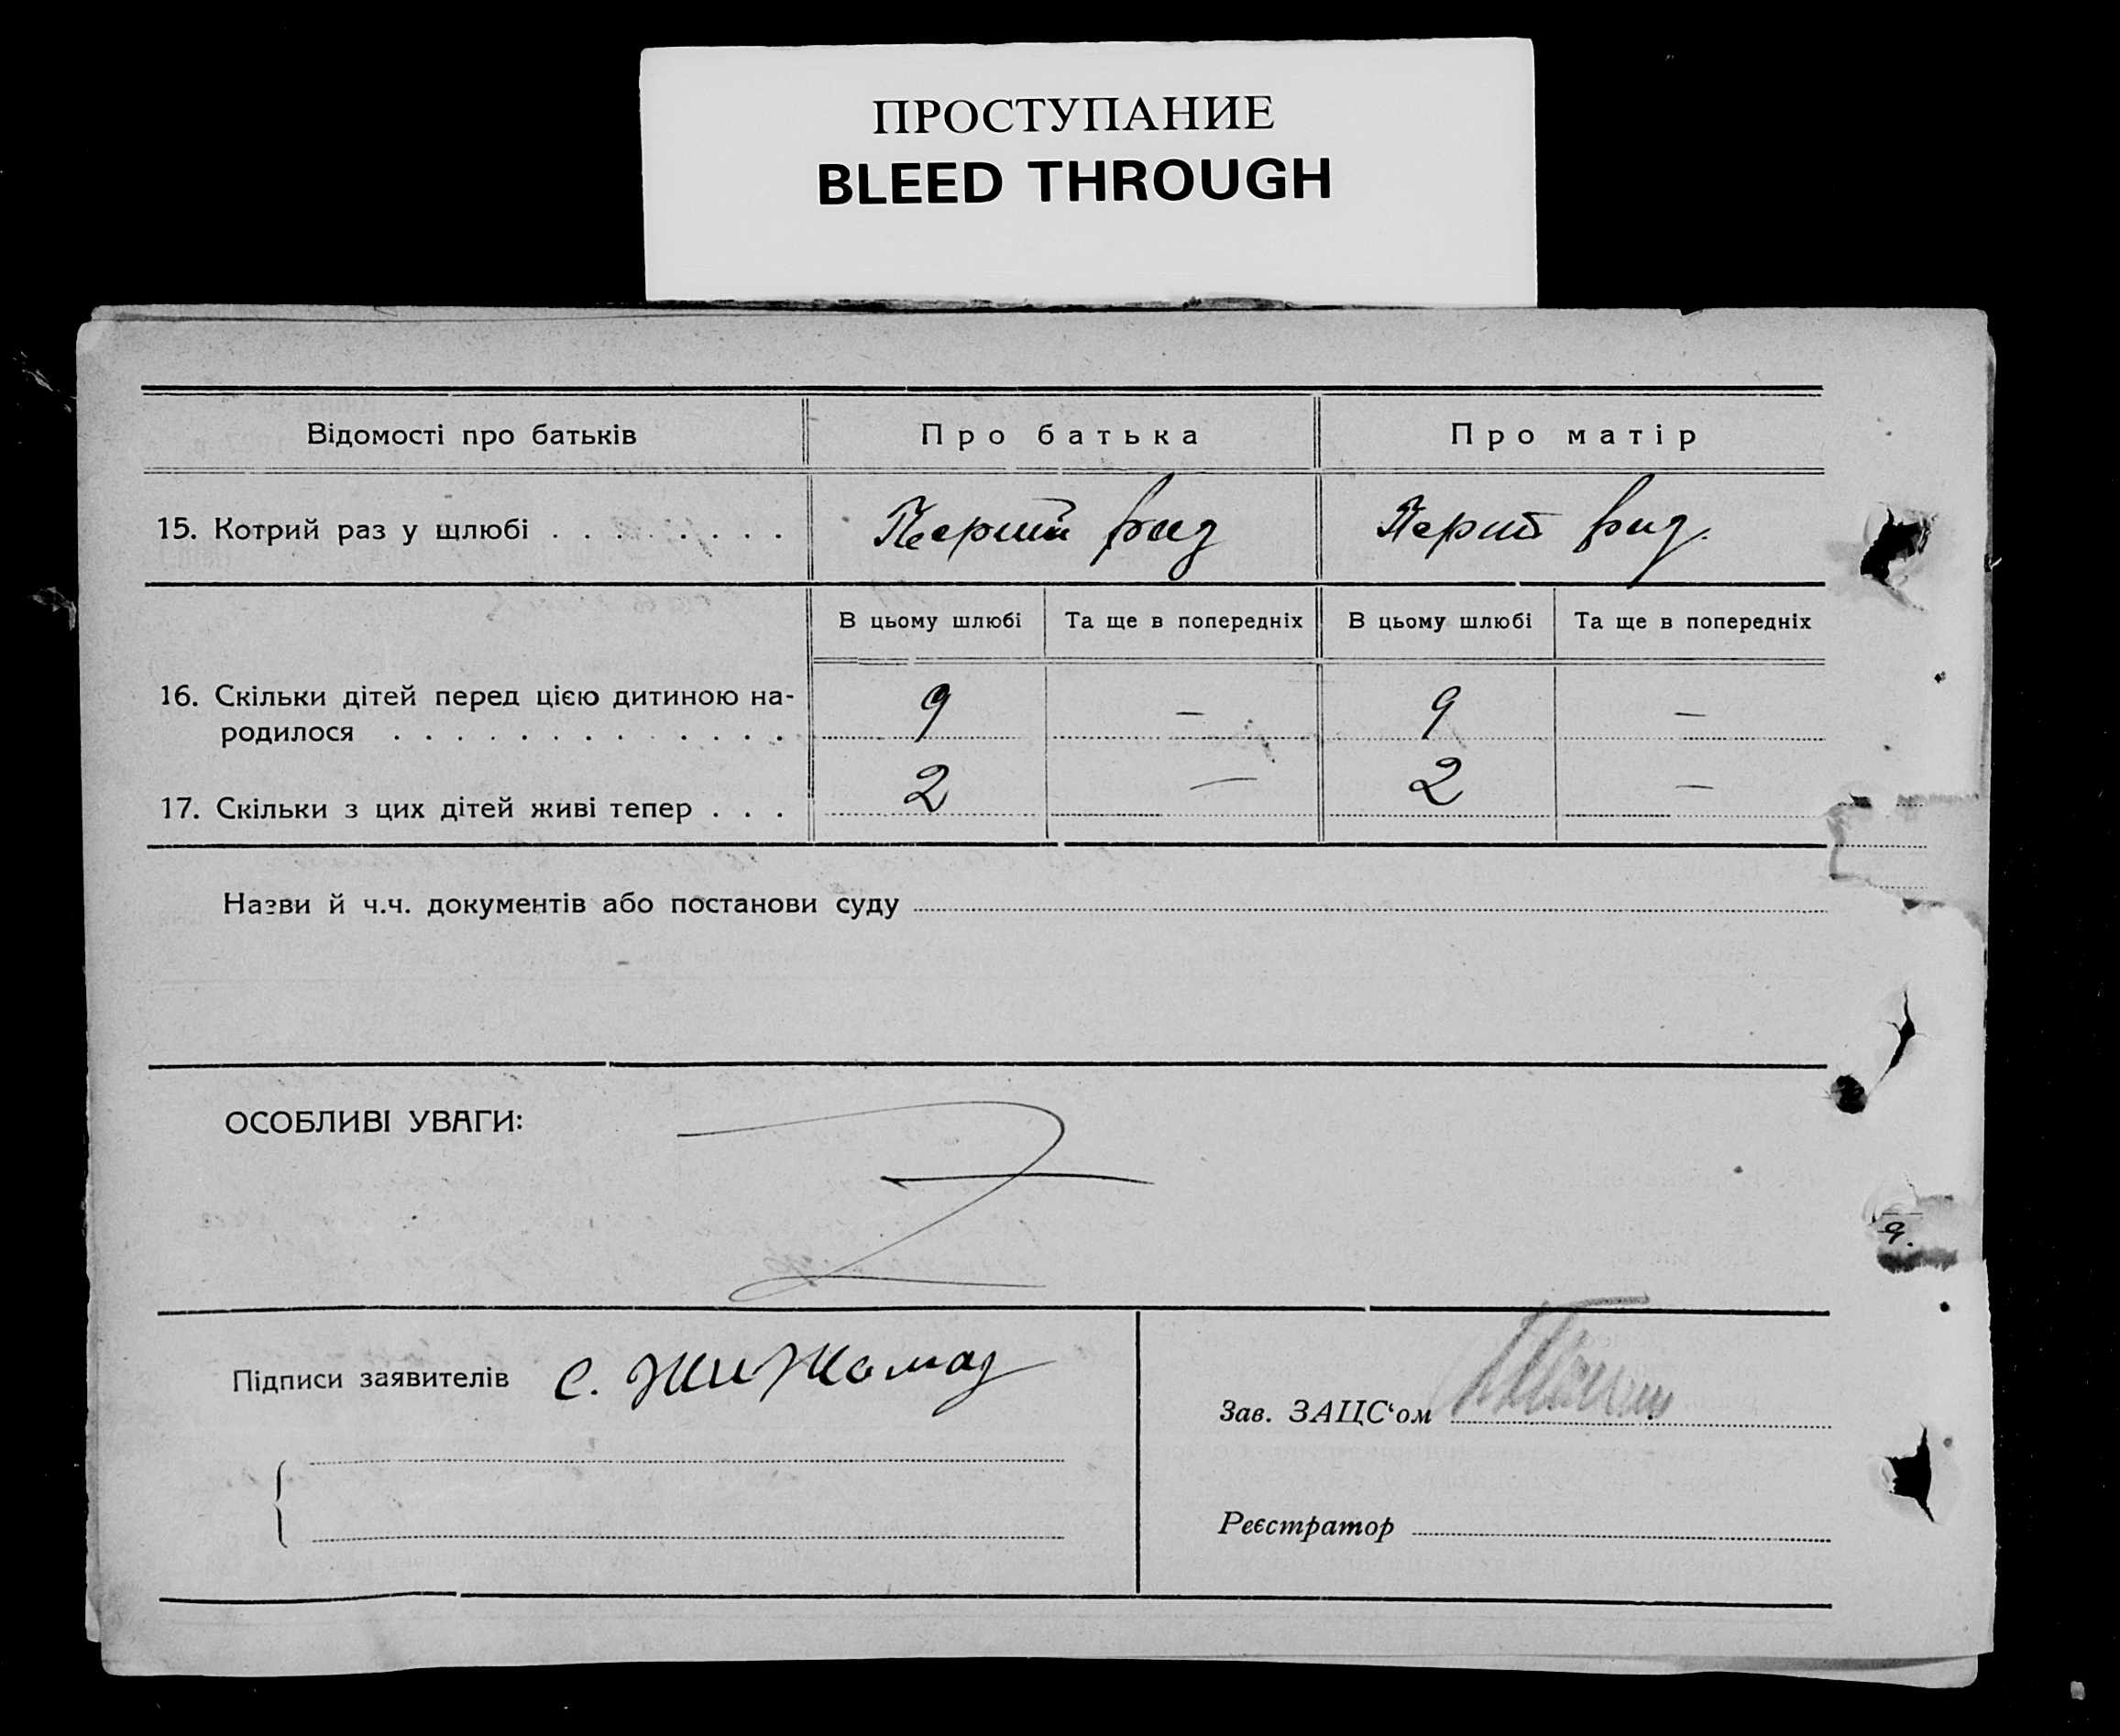 ПРОСТУПАНИЕ
BLEED THROUGH
Відомості про батьків Про батька Про матір
15. Котрий раз у шлюбі . . . . . . . . Перший раз Перший раз.
В цьому шлюбі Та ще в попередніх В цьому шлюбі Та ще в попередніх
16. Скільки дітей перед цією дитиною на-
родилося . . . . . . . . . . . . . 9 — 9 —
17. Скільки з цих дітей живі тепер . . . 2 — 2 —
Назви й ч.ч. документів або постанови суду
ОСОБЛИВІ УВАГИ:
Підписи заявителів С.
Зав. ЗАЦС‘ом
Реєстратор
9.